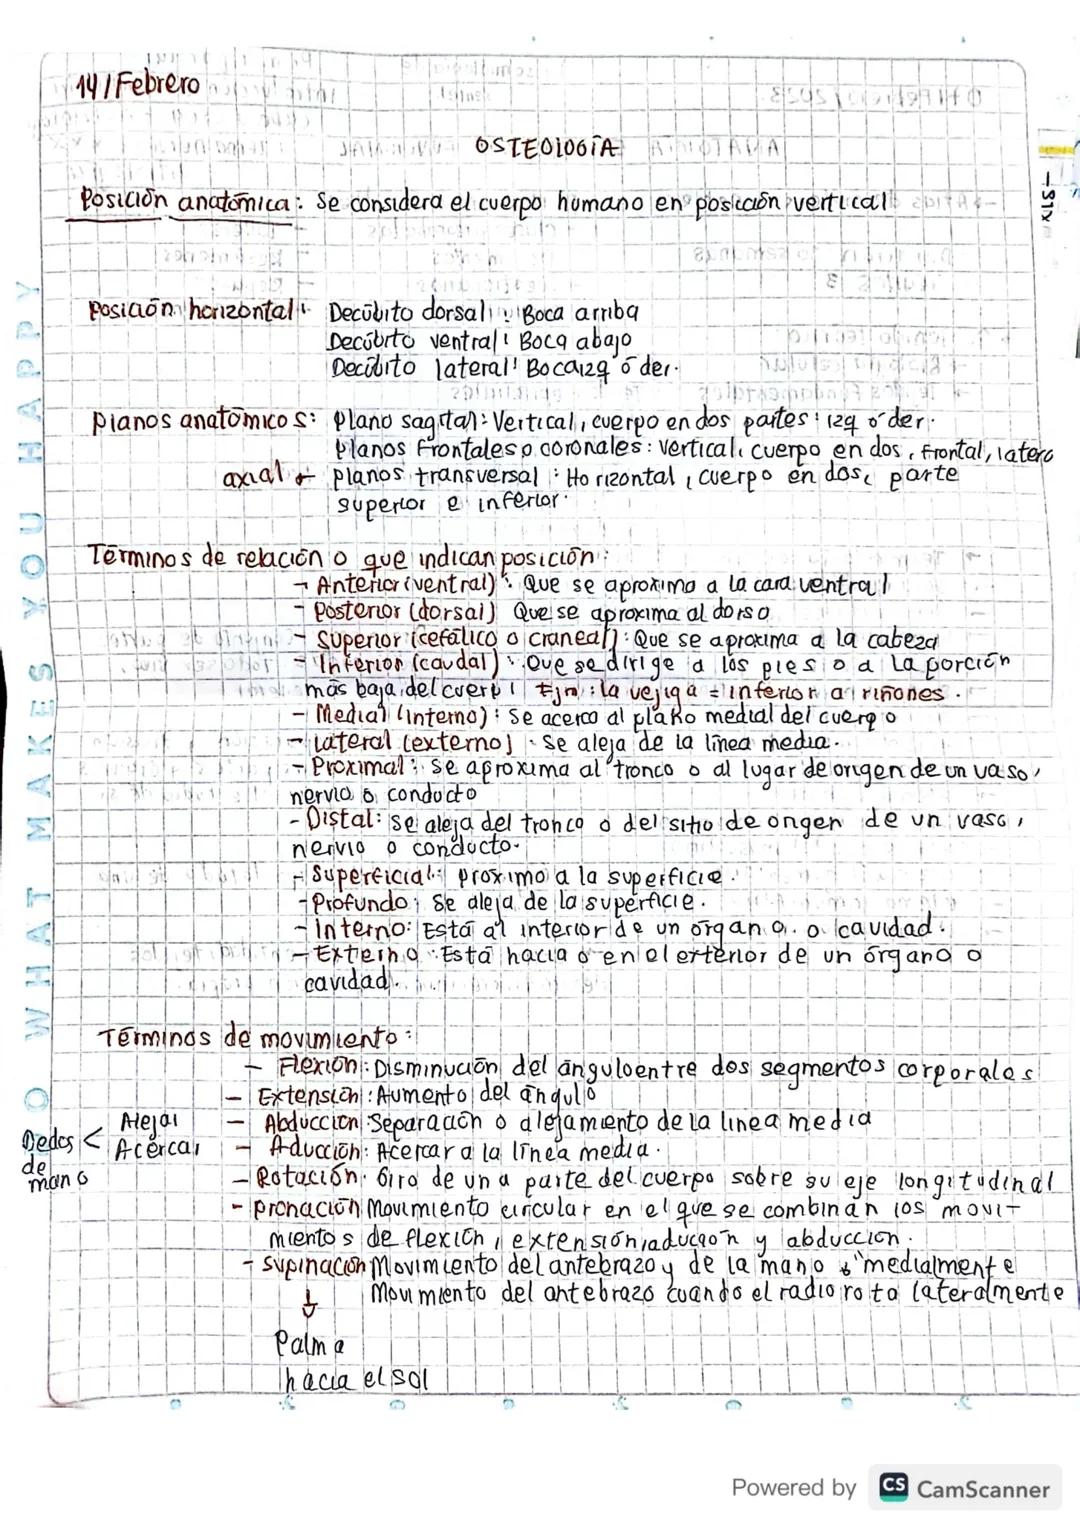 14/Febrero
OSTEOLOGÍA
Posición anatómica: Se considera el cuerpo humano en posición vertical
Posición horizontal: Decúbito dorsal: Boca arriba
Decúbito ventral: Boca abajo
Decúbito lateral: Boca izq ó der.
Planos anatómicos: Plano sagital: Vertical, cuerpo en dos partes: izq ó der.
Planos Frontales o coronales: Vertical, cuerpo en dos, Frontal, latero
axial ← planos transversal: Horizontal, cuerpo en dos, parte
superior e inferior.
Términos de relación o que indican posición:
→ Anterior (ventral): Que se aproxima a la cara ventral
- Posterior (dorsal) Que se aproxima al dorso
- Superior (cefálico o craneal): Que se aproxima a la cabeza
- Inferior (caudal): Que se dirige a los pies o a la porción
más baja del cuerpo Ejm: la vejiga = inferior a riñones.
- Medial (interno): Se acerca al plano medial del cuerpo
- Lateral (externo): Se aleja de la línea media.
- Proximal: Se aproxima al tronco o al lugar de origen de un vaso,
nervio o conducto
- Distal: Se aleja del tronco o del sitio de origen de un vaso,
nervio o conducto.
- Superficial: próximo a la superficie.
- Profundo: Se aleja de la superficie.
- Interno: Está al interior de un órgano o cavidad.
- Externo: Está hacia o en el exterior de un órgano o
cavidad.
Términos de movimiento:
- Flexión: Disminución del ángulo entre dos segmentos corporales
- Extensión: Aumento del ángulo
Alejar - Abducción: Separación o alejamiento de la línea media
Dedos < Acercar - Aducción: Acercar a la línea media.
de
mano
- Rotación: Giro de una parte del cuerpo sobre su eje longitudinal
- pronación Movimiento circular en el que se combinan los movi-
mientos de flexión, extensión, aducción y abducción.
- supinación Movimiento del antebrazo y de la mano "medialmente
↓ Movimiento del antebrazo cuando el radio rota lateralmente
Palma
hacia el sol
O WHAT MAKES YOU HAPPY
Powered by CS CamScanner